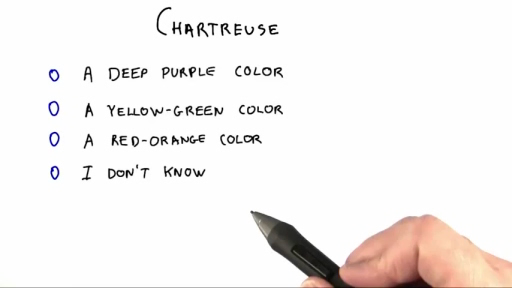 CHARTREUSE
A DEEP PURPLE COLOR
A YELLOW-GREEN COLOR
A RED-ORANGE COLOR
I DON'T KNOW